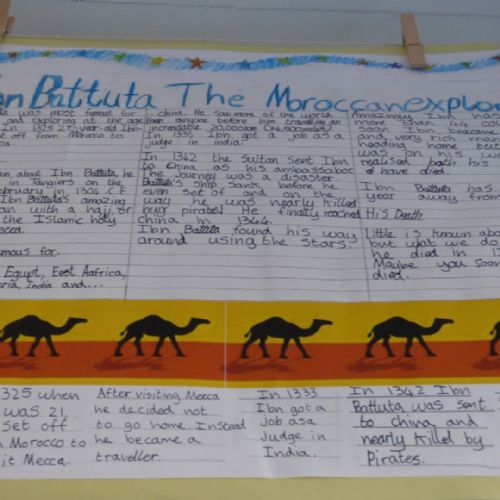 n Battuta The Moroccan explor
ta was most famous for
and exploring at the age
In 1325 21-year-old Ibn
e off from Morocco to
cca.
on, about Ibn Battuta, he
in Tangiers on the
ebruary 1304 C.E
Ibn Battuta's amazing
an with a hajj, or
the Islamic holy
ecca.
amous for.
Egypt, East Aafrica,
eria, India and...
china. He saw more of the world
than anyone before him travelling an
incredable 20,000km (74,500miles).
In 1335 Ibn got a job as a
judge in india.
In 1342 the Sultan sent Ibn
to china as his ambassabor
The journey was a disaster.
Battuta's ship sank before he
even set of and on the
way he was nearly killed
buy pirates! He finally reached
China in 1344.
Ibn Battuta found his way
around using the Stars.
Amazingly Ibn has
more than 44 co
Soon Ibn became
and very rich mo
heading home but
was on his w
realised both his
of have died.
Ibn Battuta has
year away from
His Death
Little is known abo
but what we do
he died in 13
Maybe you soon
died.
325 when
was 21,
set off
n Morocco to
it Mecca.
After visiting Mecca
he decided not
to go home. InStead
he became a
traveller.
In 1333
Ibn got a
job as a
Judge in
India.
In 1342 Ibn
Battuta was sent
to china and
nearly killed by
Pirates.